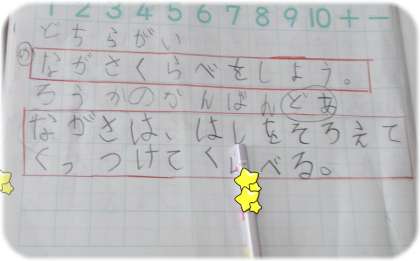 1 2 3 4 5 6 7 8 9 10 + −
どちらがい
め ながさくらべをしよう。
ろうかのかんばん どあ
ながさは、はしをそろえて
くっつけてくらべる。